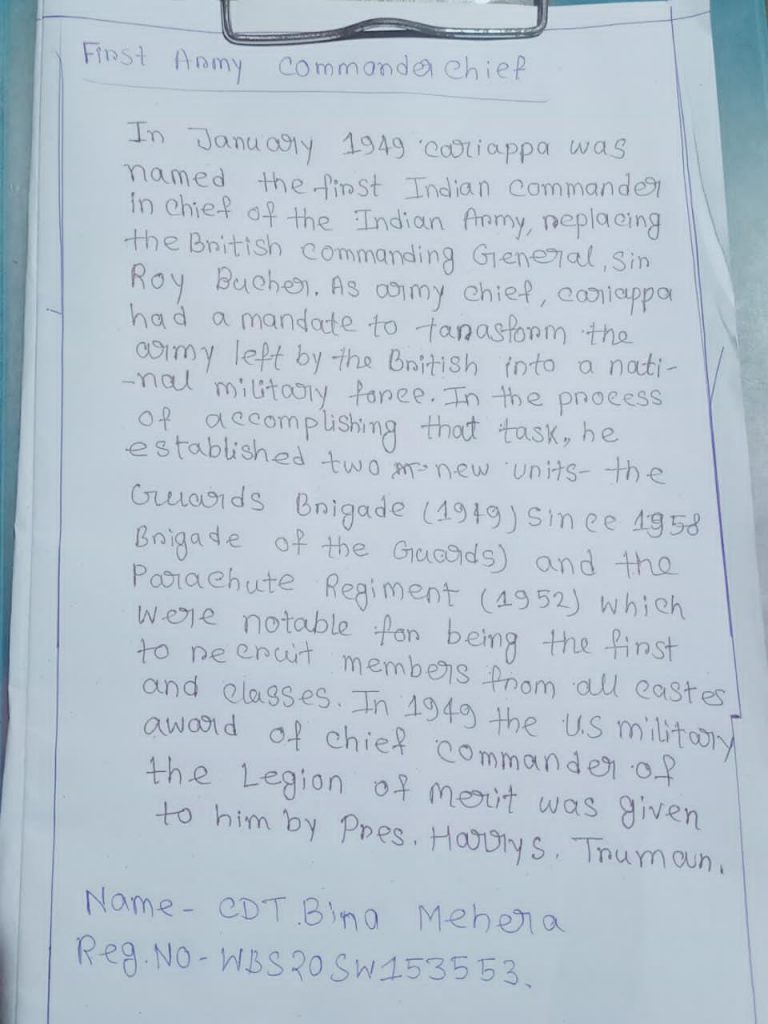 First Army Commander chief
In January 1949 cariappa was
named the first Indian commander
in chief of the Indian Army, replacing
the British commanding General, Sir
Roy Bucher. As army chief, cariappa
had a mandate to tanasform the
army left by the British into a nati-
-nal military force. In the process
of accomplishing that task, he
established two new units- the
Guards Brigade (1949) Since 1958
Brigade of the Guards) and the
Parachute Regiment (1952) which
were notable for being the first
to recruit members from all castes
and classes. In 1949 the U.S military
award of chief commander of
the Legion of Merit was given
to him by Pres. Harry S. Truman.
Name- CDT. Bina Mehera
Reg. No- WBS20SW153553.